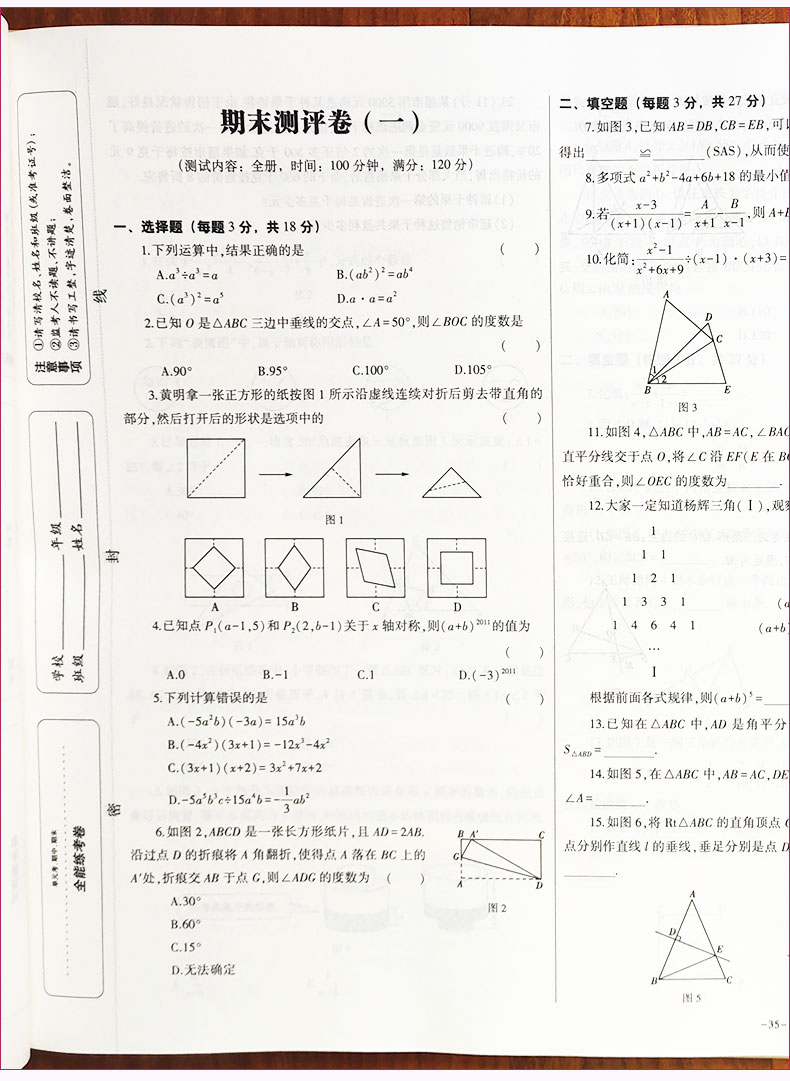 期末测评卷（一）
（测试内容：全册，时间：100分钟，满分：120分）
注意事项
①请写清校名、姓名和班级（或准考证号）；
②监考人不读题、不讲题；
③请书写工整，字迹清楚，卷面整洁。
学校 年级
班级 姓名
单元考·期中·期末
全能练考卷
线
封
密
一、选择题（每题3分，共18分）
1.下列运算中，结果正确的是 （ ）
A.a³÷a³=a B.(ab²)²=ab⁴
C.(a³)²=a⁵ D.a·a=a²
2.已知O是△ABC三边中垂线的交点，∠A=50°，则∠BOC的度数是
（ ）
A.90° B.95° C.100° D.105°
3.黄明拿一张正方形的纸按图1所示沿虚线连续对折后剪去带直角的
部分，然后打开后的形状是选项中的 （ ）
图1
A B C D
4.已知点P₁(a-1,5)和P₂(2,b-1)关于x轴对称，则(a+b)²⁰¹¹的值为
（ ）
A.0 B.-1 C.1 D.(-3)²⁰¹¹
5.下列计算错误的是 （ ）
A.(-5a²b)(-3a)=15a³b
B.(-4x²)(3x+1)=-12x³-4x²
C.(3x+1)(x+2)=3x²+7x+2
D.-5a⁵b³c÷15a⁴b=-1/3ab²
6.如图2，ABCD是一张长方形纸片，且AD=2AB，
沿过点D的折痕将A角翻折，使得点A落在BC上的
A′处，折痕交AB于点G，则∠ADG的度数为 （ ）
A.30°
B.60°
C.15°
D.无法确定
B A′ C
G
A D
图2
二、填空题（每题3分，共27分）
7.如图3，已知AB=DB，CB=EB，可以
得出 ≌ (SAS)，从而使
8.多项式a²+b²-4a+6b+18的最小值
9.若(x-3)/((x+1)(x-1))=A/(x+1)-B/(x-1)，则A+B
10.化简：(x²-1)/(x²+6x+9)÷(x-1)·(x+3)=
A
D
C
1
2
B E
图3
11.如图4，△ABC中，AB=AC，∠BAC
直平分线交于点O，将∠C沿EF(E在BC
恰好重合，则∠OEC的度数为 .
12.大家一定知道杨辉三角(Ⅰ)，观察
1
1 1
1 2 1
1 3 3 1 (a
1 4 6 4 1 (a+b)
…
Ⅰ
根据前面各式规律，则(a+b)⁵=
13.已知在△ABC中，AD是角平分
S△ABD= .
14.如图5，在△ABC中，AB=AC，DE
∠A= .
15.如图6，将Rt△ABC的直角顶点C
点分别作直线l的垂线，垂足分别是点D
.
A
D
E
B C
图5
-35-